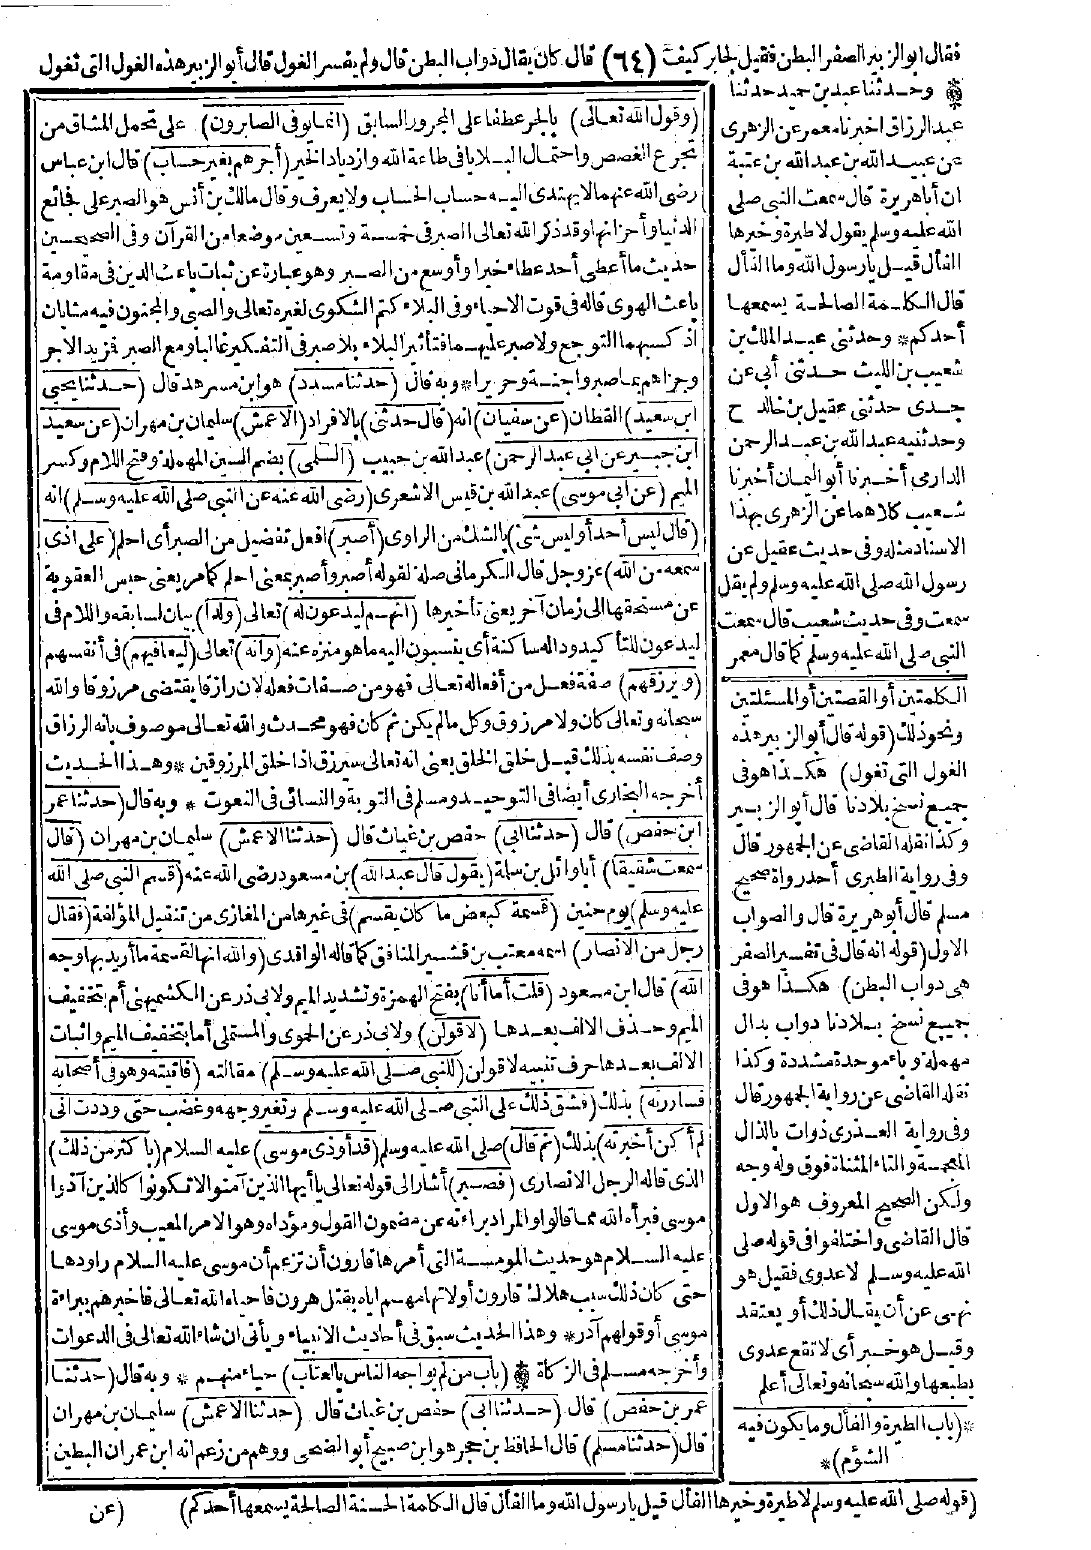 فقال ابو الزبير الصفر البطن فقيل لجابر كيف (٦٤) قال كان يقال دواب البطن قال ولم يفسر الغول قال أبو الزبير هذه الغول التي تغول
* وحدثنا عبد بن حميد حدثنا
عبد الرزاق اخبرنا معمر عن الزهرى
عن عبيد الله بن عبد الله بن عتبة
ان أبا هريرة قال سمعت النبي صلى
الله عليه وسلم يقول لا طيرة وخيرها
الفأل قيل يا رسول الله وما الفأل
قال الكلمة الصالحة يسمعها
أحدكم * وحدثنى عبد الملك بن
شعيب بن الليث حدثنى أبي عن
جدى حدثنى عقيل بن خالد ح
وحدثنيه عبد الله بن عبد الرحمن
الدارمى أخبرنا أبو اليمان أخبرنا
شعيب كلاهما عن الزهرى بهذا
الاسناد مثله وفى حديث عقيل عن
رسول الله صلى الله عليه وسلم ولم يقل
سمعت وفى حديث شعيب قال سمعت
النبي صلى الله عليه وسلم كما قال معمر
الكلمتين أو القصتين أو المسئلتين
ونحو ذلك (قوله قال أبو الزبير هذه
الغول التى تغول) هكذا هو فى
جميع نسخ بلادنا قال أبو الزبير
وكذا نقله القاضى عن الجمهور قال
وفى رواية الطبرى أحد رواة صحيح
مسلم قال أبو هريرة قال والصواب
الاول (قوله انه قال فى تفسير الصفر
هى دواب البطن) هكذا هو فى
جميع نسخ بلادنا دواب بدال
مهملة وباء موحدة مشددة وكذا
نقله القاضى عن رواية الجمهور قال
وفى رواية العذرى ذوات بالذال
المعجمة والتاء المثناة فوق وله وجه
ولكن الصحيح المعروف هو الاول
قال القاضى واختلفوا فى قوله صلى
الله عليه وسلم لا عدوى فقيل هو
نهى عن أن يقال ذلك أو يعتقد
وقيل هو خبر أى لا تقع عدوى
بطبعها والله سبحانه وتعالى أعلم
*(باب الطيرة والفأل وما يكون فيه
الشؤم)*
(وقول الله تعالى) بالجر عطفا على المجرور السابق (انما يوفى الصابرون) على تحمل المشاق من
تجرع الغصص واحتمال البلايا فى طاعة الله وازدياد الخير (أجرهم بغير حساب) قال ابن عباس
رضى الله عنهما لا يهتدى اليه حساب الحساب ولا يعرف وقال مالك بن أنس هو الصبر على فجائع
الدنيا وأحزانها وقد ذكر الله تعالى الصبر فى خمسة وتسعين موضعا من القرآن وفى الصحيحين
حديث ما أعطى أحد عطاء خيرا وأوسع من الصبر وهو عبارة عن ثبات باعث الدين فى مقاومة
باعث الهوى قاله فى قوت الاحياء وفى البلاء كتم الشكوى لغيره تعالى والصبى والمجنون فيه مثابان
اذ كسبهما التوجع ولا صبر عليهما فتأثير البلاء بلا صبر فى التفكير غالبا ومع الصبر فزيد الاجر
وجزاهم بما صبروا جنة وحريرا * وبه قال (حدثنا مسدد) هو ابن مسرهد قال (حدثنا يحيى
ابن سعيد) القطان (عن سفيان) انه (قال حدثنى) بالافراد (الاعمش) سليمان بن مهران (عن سعيد
ابن جبير عن ابى عبد الرحمن) عبد الله بن حبيب (السلمى) بضم السين المهملة وفتح اللام وكسر
الميم (عن ابى موسى) عبد الله بن قيس الاشعرى (رضى الله عنه عن النبي صلى الله عليه وسلم) انه
(قال ليس أحد أو ليس شئ) بالشك من الراوى (أصبر) افعل تفضيل من الصبر أى احلم (على اذى
سمعه من الله) عز وجل قال الكرمانى صلة لقوله أصبر وأصبر بمعنى احلم كما مر يعنى حبس العقوبة
عن مستحقها الى زمان آخر يعنى تأخيرها (انهم ليدعون له) تعالى (ولدا) بيان لسابقه واللام فى
ليدعون للتأكيد وداله ساكنة أى ينسبون اليه ما هو منزه عنه (وانه) تعالى (ليعافيهم) فى أنفسهم
(ويرزقهم) صفة فعل من أفعاله تعالى فهو من صفات فعله لان رازقا يقتضى مرزوقا والله
سبحانه وتعالى كان ولا مرزوق وكل ما لم يكن ثم كان فهو محدث والله تعالى موصوف بانه الرزاق
وصف نفسه بذلك قبل خلق الخلق يعنى انه تعالى سيرزق اذا خلق المرزوقين * وهذا الحديث
أخرجه البخارى أيضا فى التوحيد ومسلم فى التوبة والنسائى فى النعوت * وبه قال (حدثنا عمر
ابن حفص) قال (حدثنا ابى) حفص بن غياث قال (حدثنا الاعمش) سليمان بن مهران (قال
سمعت شقيقا) أبا وائل بن سلمة (يقول قال عبد الله) بن مسعود رضى الله عنه (قسم النبي صلى الله
عليه وسلم) يوم حنين (قسمة كبعض ما كان يقسم) فى غيرها من المغازى من تنفيل المؤلفة (فقال
رجل من الانصار) اسمه معتب بن قشير المنافق كما قاله الواقدى (والله انها لقسمة ما أريد بها وجه
الله) قال ابن مسعود (قلت أما أنا) بفتح الهمزة وتشديد الميم ولابى ذر عن الكشميهنى أم بتخفيف
الميم وحذف الالف بعدها (لاقولن) ولابى ذر عن الحموى والمستملى أما بتخفيف الميم واثبات
الالف بعدها حرف تنبيه لاقولن (للنبى صلى الله عليه وسلم) مقالته (فأتيته وهو فى أصحابه
فساررته) بذلك (فشق ذلك على النبي صلى الله عليه وسلم وتغير وجهه وغضب حتى وددت انى
لم أكن أخبرته) بذلك (ثم قال) صلى الله عليه وسلم (قد أوذى موسى) عليه السلام (باكثر من ذلك)
الذى قاله الرجل الانصارى (فصبر) أشار الى قوله تعالى يا أيها الذين آمنوا لا تكونوا كالذين آذوا
موسى فبرأه الله مما قالوا والمراد براءته عن مضمون القول ومؤداه وهو الامر المعيب وأذى موسى
عليه السلام هو حديث المومسة التى أمرها قارون أن تزعم أن موسى عليه السلام راودها
حتى كان ذلك سبب هلاك قارون أو لاتهامهم اياه بقتل هرون فأحياه الله تعالى فأخبرهم ببراءة
موسى أو قولهم آدر * وهذا الحديث سبق فى أحاديث الانبياء ويأتى ان شاء الله تعالى فى الدعوات
وأخرجه مسلم فى الزكاة * (باب من لم يواجه الناس بالعتاب) حياء منهم * وبه قال (حدثنا
عمر بن حفص) قال (حدثنا ابى) حفص بن غياث قال (حدثنا الاعمش) سليمان بن مهران
قال (حدثنا مسلم) قال الحافظ بن حجر هو ابن صبيح أبو الضحى ووهم من زعم انه ابن عمران البطين
(قوله صلى الله عليه وسلم لا طيرة وخيرها الفأل قيل يا رسول الله وما الفأل قال الكلمة الحسنة الصالحة يسمعها أحدكم) (عن